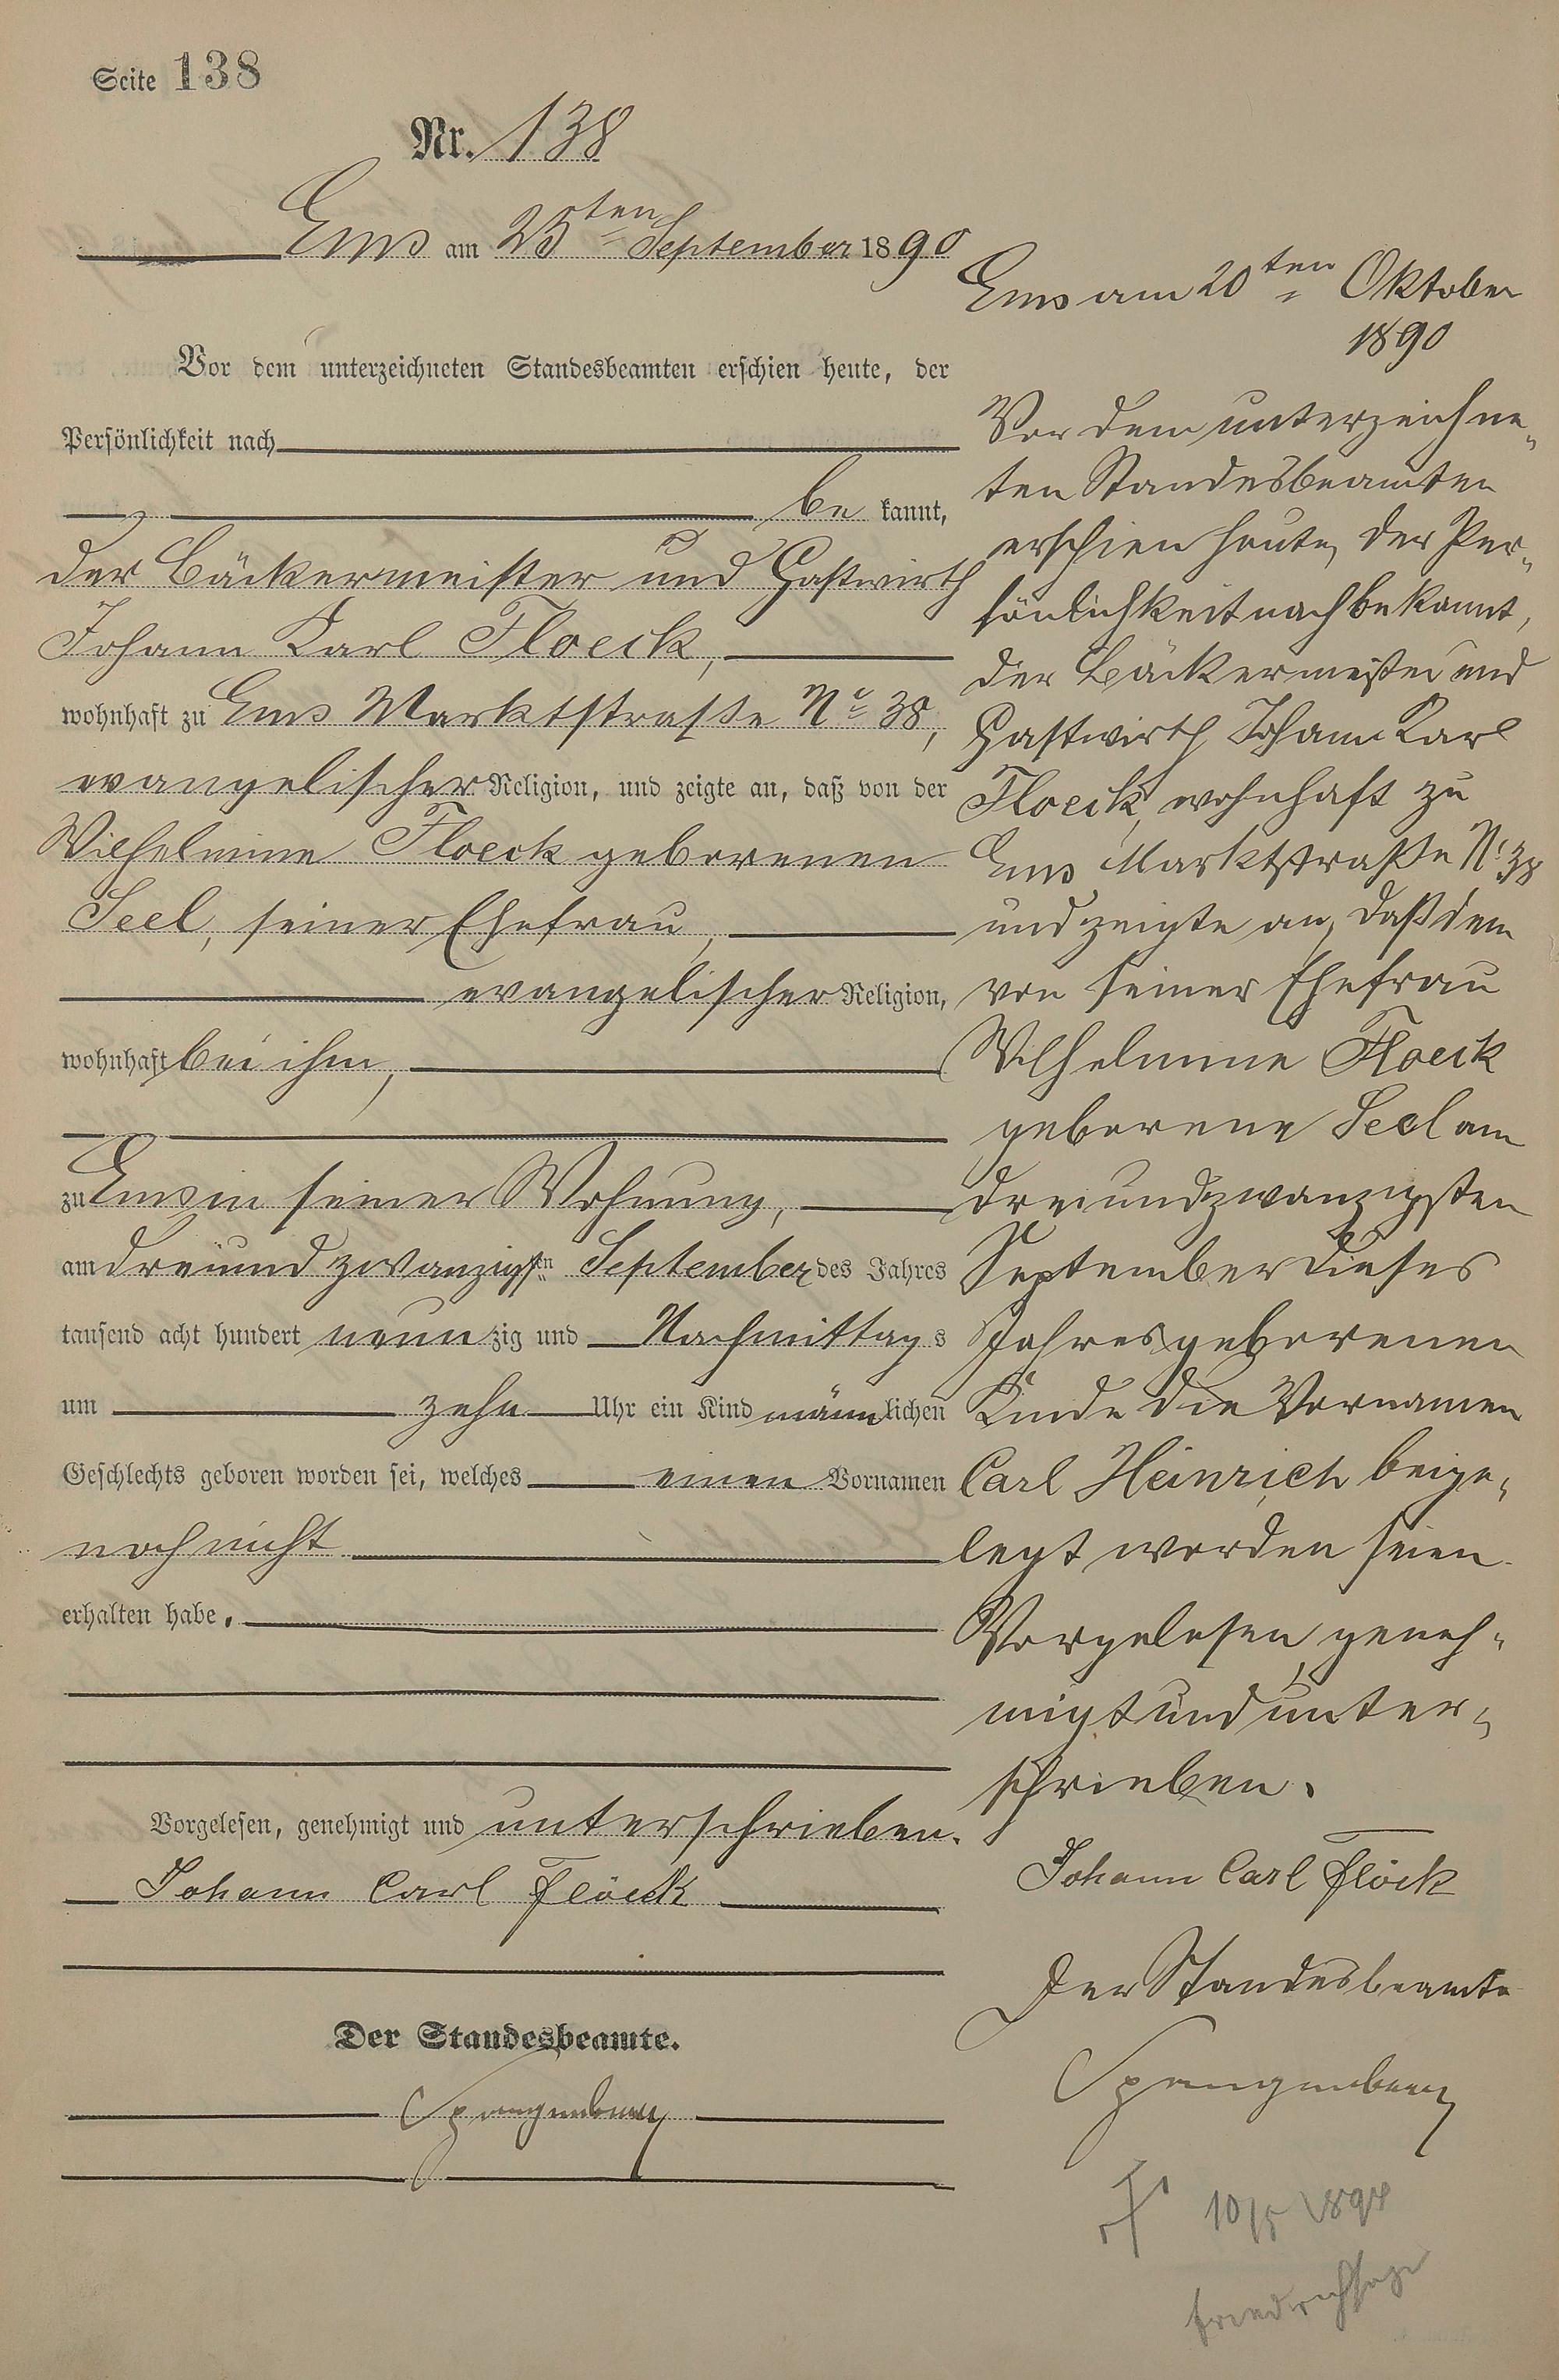 Seite 138
Nr. 138
Ems am 25ten September 1890
Vor dem unterzeichneten Standesbeamten erschien heute, der
Persönlichkeit nach
be kannt,
der Bäckermeister und Gastwirth
Johann Karl Floeck,
wohnhaft zu Ems Marktstraße No 38,
evangelischer Religion, und zeigte an, daß von der
Wilhelmine Floeck geborenen
Seel, seiner Ehefrau,
evangelischer Religion,
wohnhaft bei ihm,
zu Ems in seiner Wohnung,
am dreiund zwanzigsten September des Jahres
tausend acht hundert neunzig und Nachmittags
um zehn Uhr ein Kind männlichen
Geschlechts geboren worden sei, welches einen Vornamen
noch nicht
erhalten habe.
Vorgelesen, genehmigt und unterschrieben.
Johann Carl Flöck
Der Standesbeamte.
Spangenberg
Ems am 20ten Oktober
1890
Vor dem unterzeichne-
ten Standesbeamten
erschien heute, der Per-
sönlichkeit nach bekannt,
der Bäckermeister und
Gastwirth Johann Karl
Floeck, wohnhaft zu
Ems Marktstraße No 38
und zeigte an, daß dem
von seiner Ehefrau
Wilhelmine Floeck
geborene Seel am
dreiundzwanzigsten
September dieses
Jahres geborenen
Kinde die Vornamen
Carl Heinrich beige-
legt worden seien.
Vorgelesen, geneh-
migt und unter-
schrieben.
Johann Carl Flöck
Der Standesbeamte
Spangenberg
10/5 1898